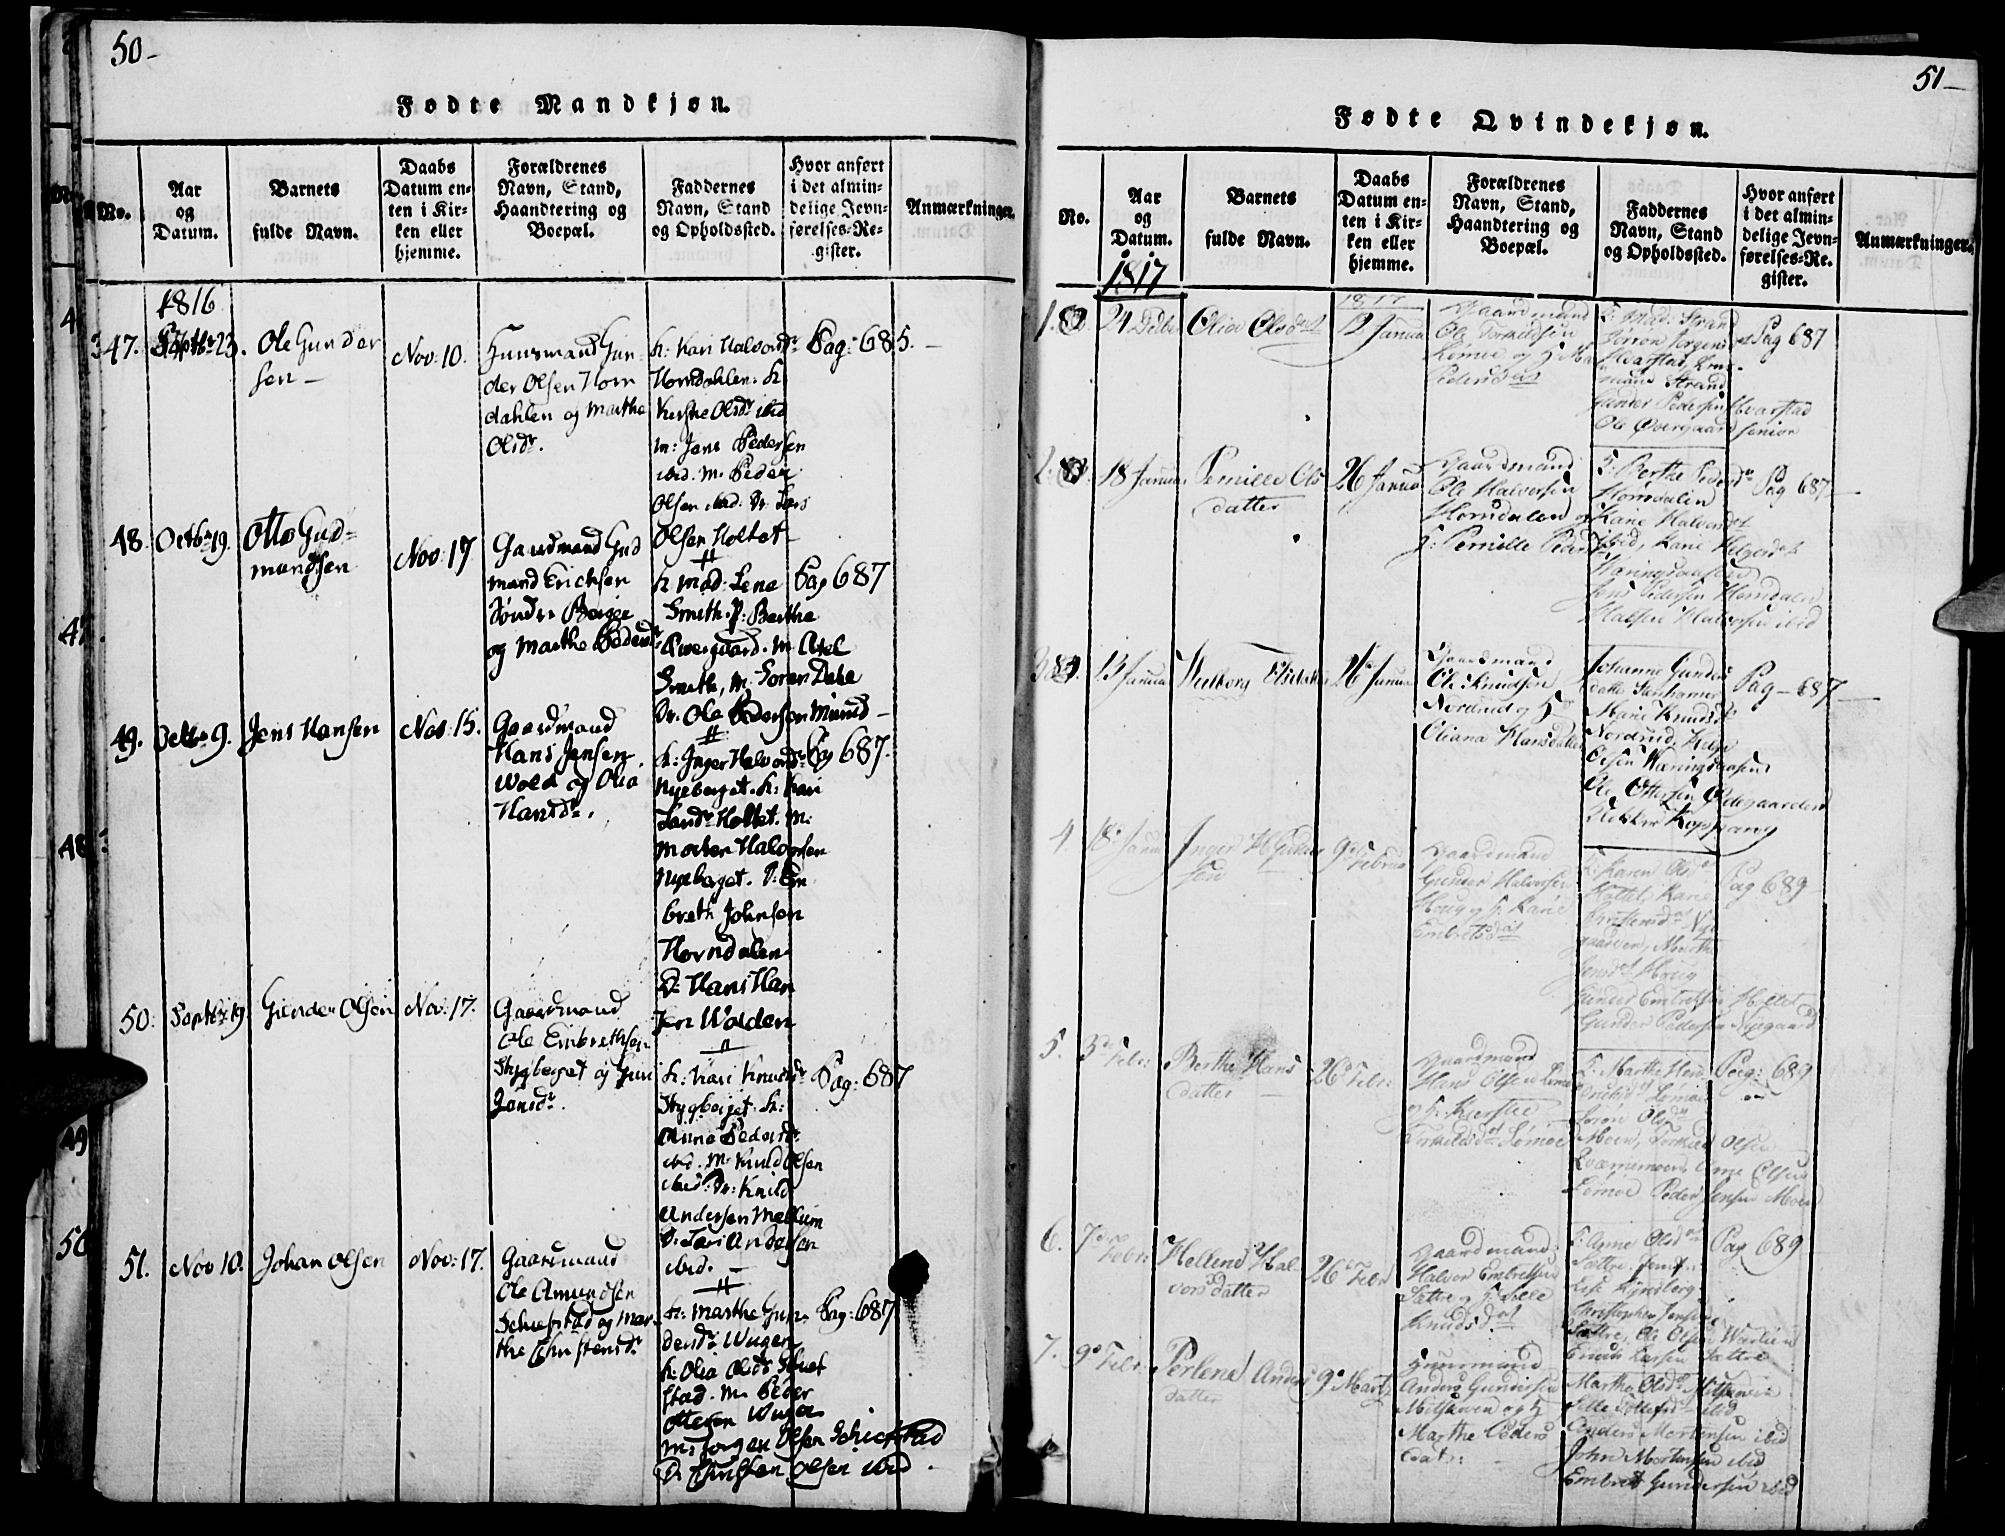 50-
Fødte Mandkjøn.
No.
Aar
og
Datum.
Barnets
fulde Navn.
Daabs
Datum en-
ten i Kir-
ken eller
hjemme.
Forældrenes
Navn, Stand,
Haandtering og
Boepæl.
Faddernes
Navn, Stand
og Opholdssted.
Hvor anført
i det almin-
delige Jevn-
førelses-Re-
gister.
Anmærkninger.
1816
47.
Septbr 23.
Ole Gunder
sen -
Nov: 10.
Huusmand Gun-
der Olsen Horn
dahlen og Marthe
Olsdr.
k: Kari Halvordr
Horndahlen. k:
Kirstie Olsdr ibid
m: Jens Pedersen
ibid. m. Peder
Olsen ibid. Dr. Lars
Olsen Holtet
Pag: 685.-
48.
Octbr 19.
Otto Gud=
mundsen
Nov: 17
Gaardmand Gud
mand Erichsen
Søndre Berge
og Marthe Pedersdr
k mad: Lena
Smeth. P: Berthe
Øvergaard. m. Axel
Smeth, m. Soren Dahe
Dr. Ole Pedersen Miund-
Pag 687
49.
Octbr 9.
Jens Hansen
Nov: 15.
Gaardmand
Hans Jensen
Wold og Olia
Hansdr.
k: Inger Halvordr
Nyeberget. k: Kari
Tordr Holtet. m:
Morten Halvorsen
Nyeberget. D: Em
breth Johnsen
Horndalen
D. Hans Han
sen Wolden
Pag 687.
50.
Septbr 19
Gunder Olsen
Nov: 17.
Gaardmand
Ole Embrethsen
Stygberget og Guri
Jonsdr.
k: Kari Knudsdr
Stygberget. k:
Anne Pedersdr
ibid. m. Knud Olsen
ibid. Dr: Knud
Andersen Mellum
D: Lars Andersen
ibid. -
Pag: 687
51.
Nov 10.
Johan Olsen
Nov: 17.
Gaardmand
Ole Amundsen
Schiefstad og Mar-
the Christensdr
k: Marthe Gun-
dersdr Wugen
k: Olia Olsdr Schief
stad. m. Peder
Ottesen Wugen
m: Jorgen Olsen Schiefstad
D. Christen Olsen ibid.
Pag: 687
51-
Fødte Qvindekjøn.
No.
Aar
og
Datum.
Barnets
fulde Navn.
Daabs
Datum en-
ten i Kir-
ken eller
hjemme.
Forældrenes
Navn, Stand,
Haandtering og
Boepæl.
Faddernes
Navn, Stand
og Opholdssted.
Hvor anført
i det almin-
delige Jevn-
førelses-Re-
gister.
Anmærkninger.
1817
1.
24 Decbr
Olia Olsdat
1817
12 Januar
Gaardmand
Ole Torkildsen
Lømoe og H: Ma
Pedersdat
F: Mad: Strand
Jørgensdat
Hvarstad,
mand Strand
Gunder Pedersen Hvarstad
Ole Øvergaard senior
Pag 687
2.
18 Januar
Pernille Ols
datter
26 Januar
Gaardmand
Ole Halvorsen
Horndalen og
H: Pernille Pedersdr
F: Berthe Pedersdr
Horndalen
Karie Halvorsdat
ibid, Karie Helgesdat
Jens Pedersen Horndalen
Halvor Halvorsen ibid
Pag 687-
3.
13 Januar
Welborg Olsdatter
26 Januar
Gaardmand
Ole Knudsen
Nordrud og H:
Oliana Hansdatter
Johanne Gunders
datte
Marie Knudsdr
Nordrud, Helge
Olsen Wæringsaasen
Ole Ottersen Ødegaarden
Klokker Koppang
Pag-687-
4.
18 Januar
Inger
9 Februar
Gaardmand
Gunder Halvorsen
Houg og H: Karie
Embretsdat
F: Karen Olsdr
Holtet, Karie
Christensdat Nye
gaarden, Marthe
Jensdat Houg
Gunder Embretsen Holtet
Gunder Pedersen Nyegaard
Pag 689
5.
3 Febr:
Berthe Hans
datter
26 Febr:
Gaardmand
Hans Olsen Lømoe
og H: Kierstie
Torkildsdat Lømoe
F: Marthe
Lømoe
Olsdr
Moen, Torkild Olsen
Kværnemoen, Arne Olsen
Lømoe Peder Jensen Moen
Pag: 689
6.
7 Febr:
Hellene Hal-
vorsdatter
26 Febr
Gaardmand
Halvor Embretsen
Sættre og H: Sille
Knudsdat
F: Agne Olsdat
Sættre,
Lise Kyndberg
Christopher Jensen
Sættre, Ole Olsen
Knud Larsen Sættre
Pag 689
7.
9 Febr:
Perlene Anders
datter
9 Marts
Huusmand
Anders Gundersen
Milskoven og H:
Marthe Peders
dat:
Marthe Olsdr Milskoven
Sille ibid
Anders Mortensen ibid
John Mortensen ibid
Embret Gundersen ibid